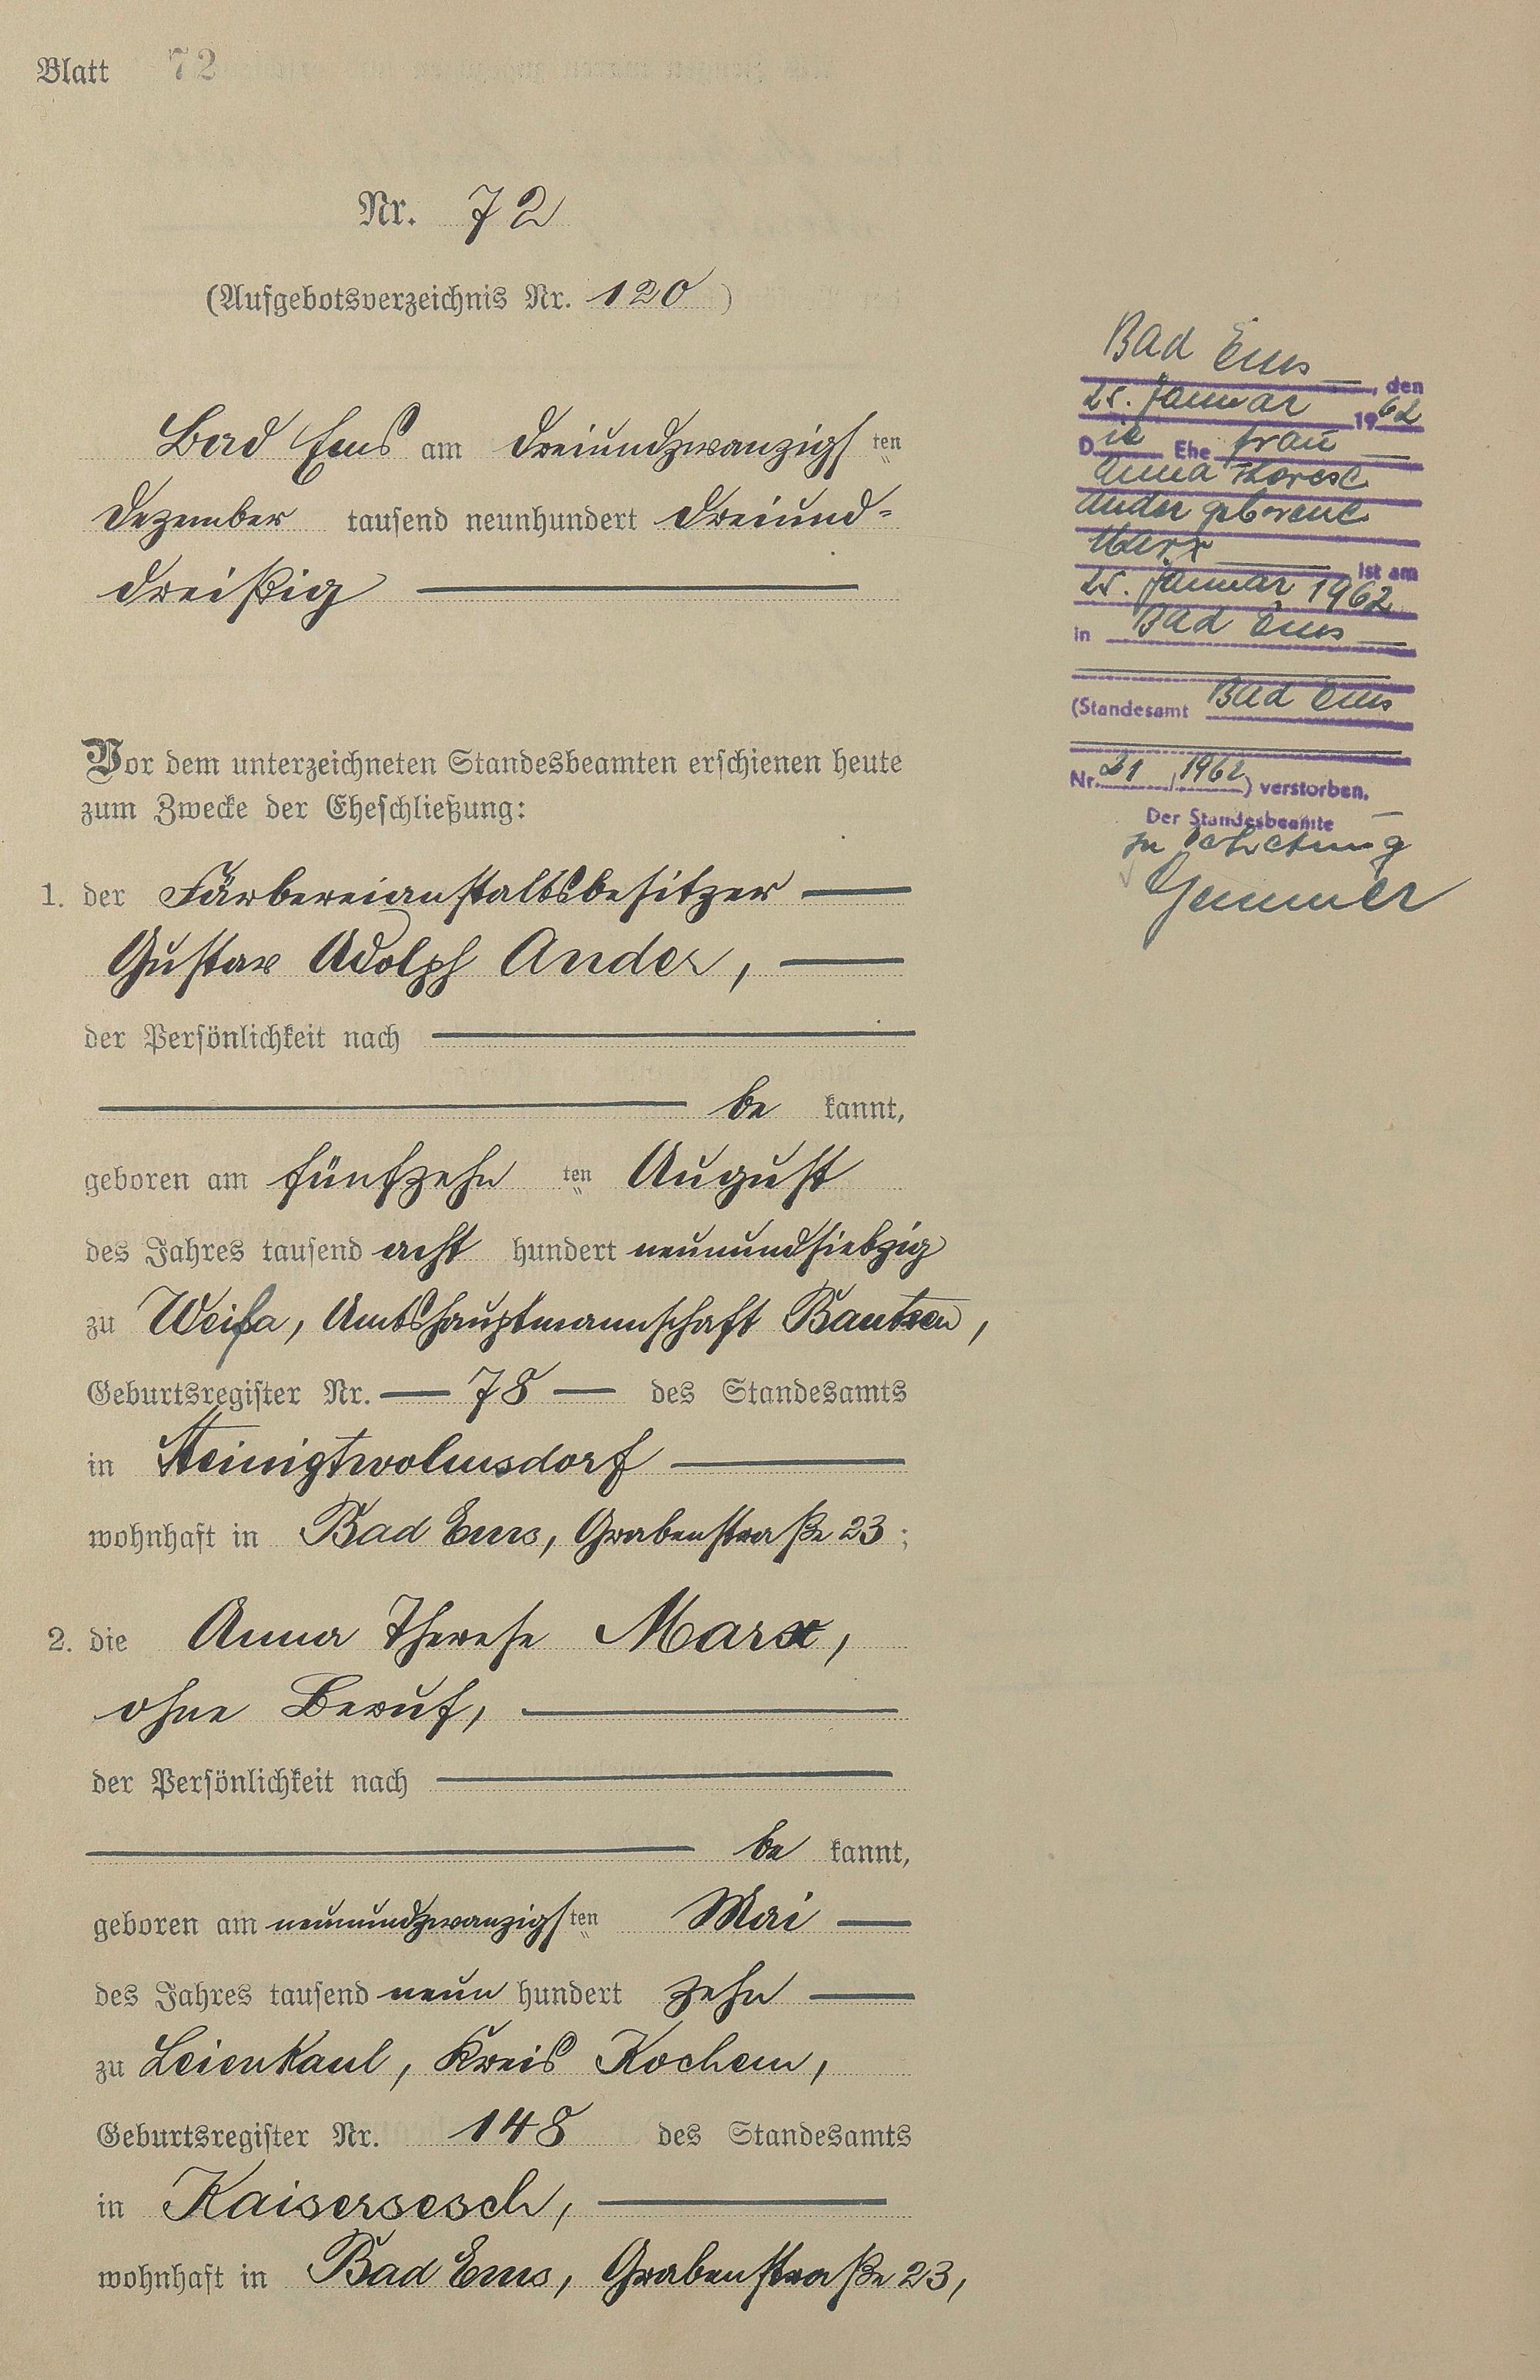 Blatt 72
Nr. 72
(Aufgebotsverzeichnis Nr. 120)
Bad Ems am dreiundzwanzigsten
Dezember tausend neunhundert dreiund-
dreißig
Vor dem unterzeichneten Standesbeamten erschienen heute
zum Zwecke der Eheschließung:
1. der Färbereianstaltsbesitzer
Gustav Adolph Ander,
der Persönlichkeit nach
be kannt,
geboren am fünfzehn ten August
des Jahres tausend acht hundert neunundsiebzig
zu Weifa, Amtshauptmannschaft Bautzen,
Geburtsregister Nr. 78 des Standesamts
in Steinigtwolmsdorf
wohnhaft in Bad Ems, Grabenstraße 23;
2. die Anna Therese Marx,
ohne Beruf,
der Persönlichkeit nach
be kannt,
geboren am neunundzwanzigsten Mai
des Jahres tausend neun hundert zehn
zu Leienkaul, Kreis Kochem,
Geburtsregister Nr. 148 des Standesamts
in Kaisersesch,
wohnhaft in Bad Ems, Grabenstraße 23,
Bad Ems, den
25. Januar 1962
Die Ehefrau
Anna Therese
Ander geborene
Marx ist am
25. Januar 1962
in Bad Ems
(Standesamt Bad Ems
Nr. 21/1962) verstorben.
Der Standesbeamte
In Vertretung